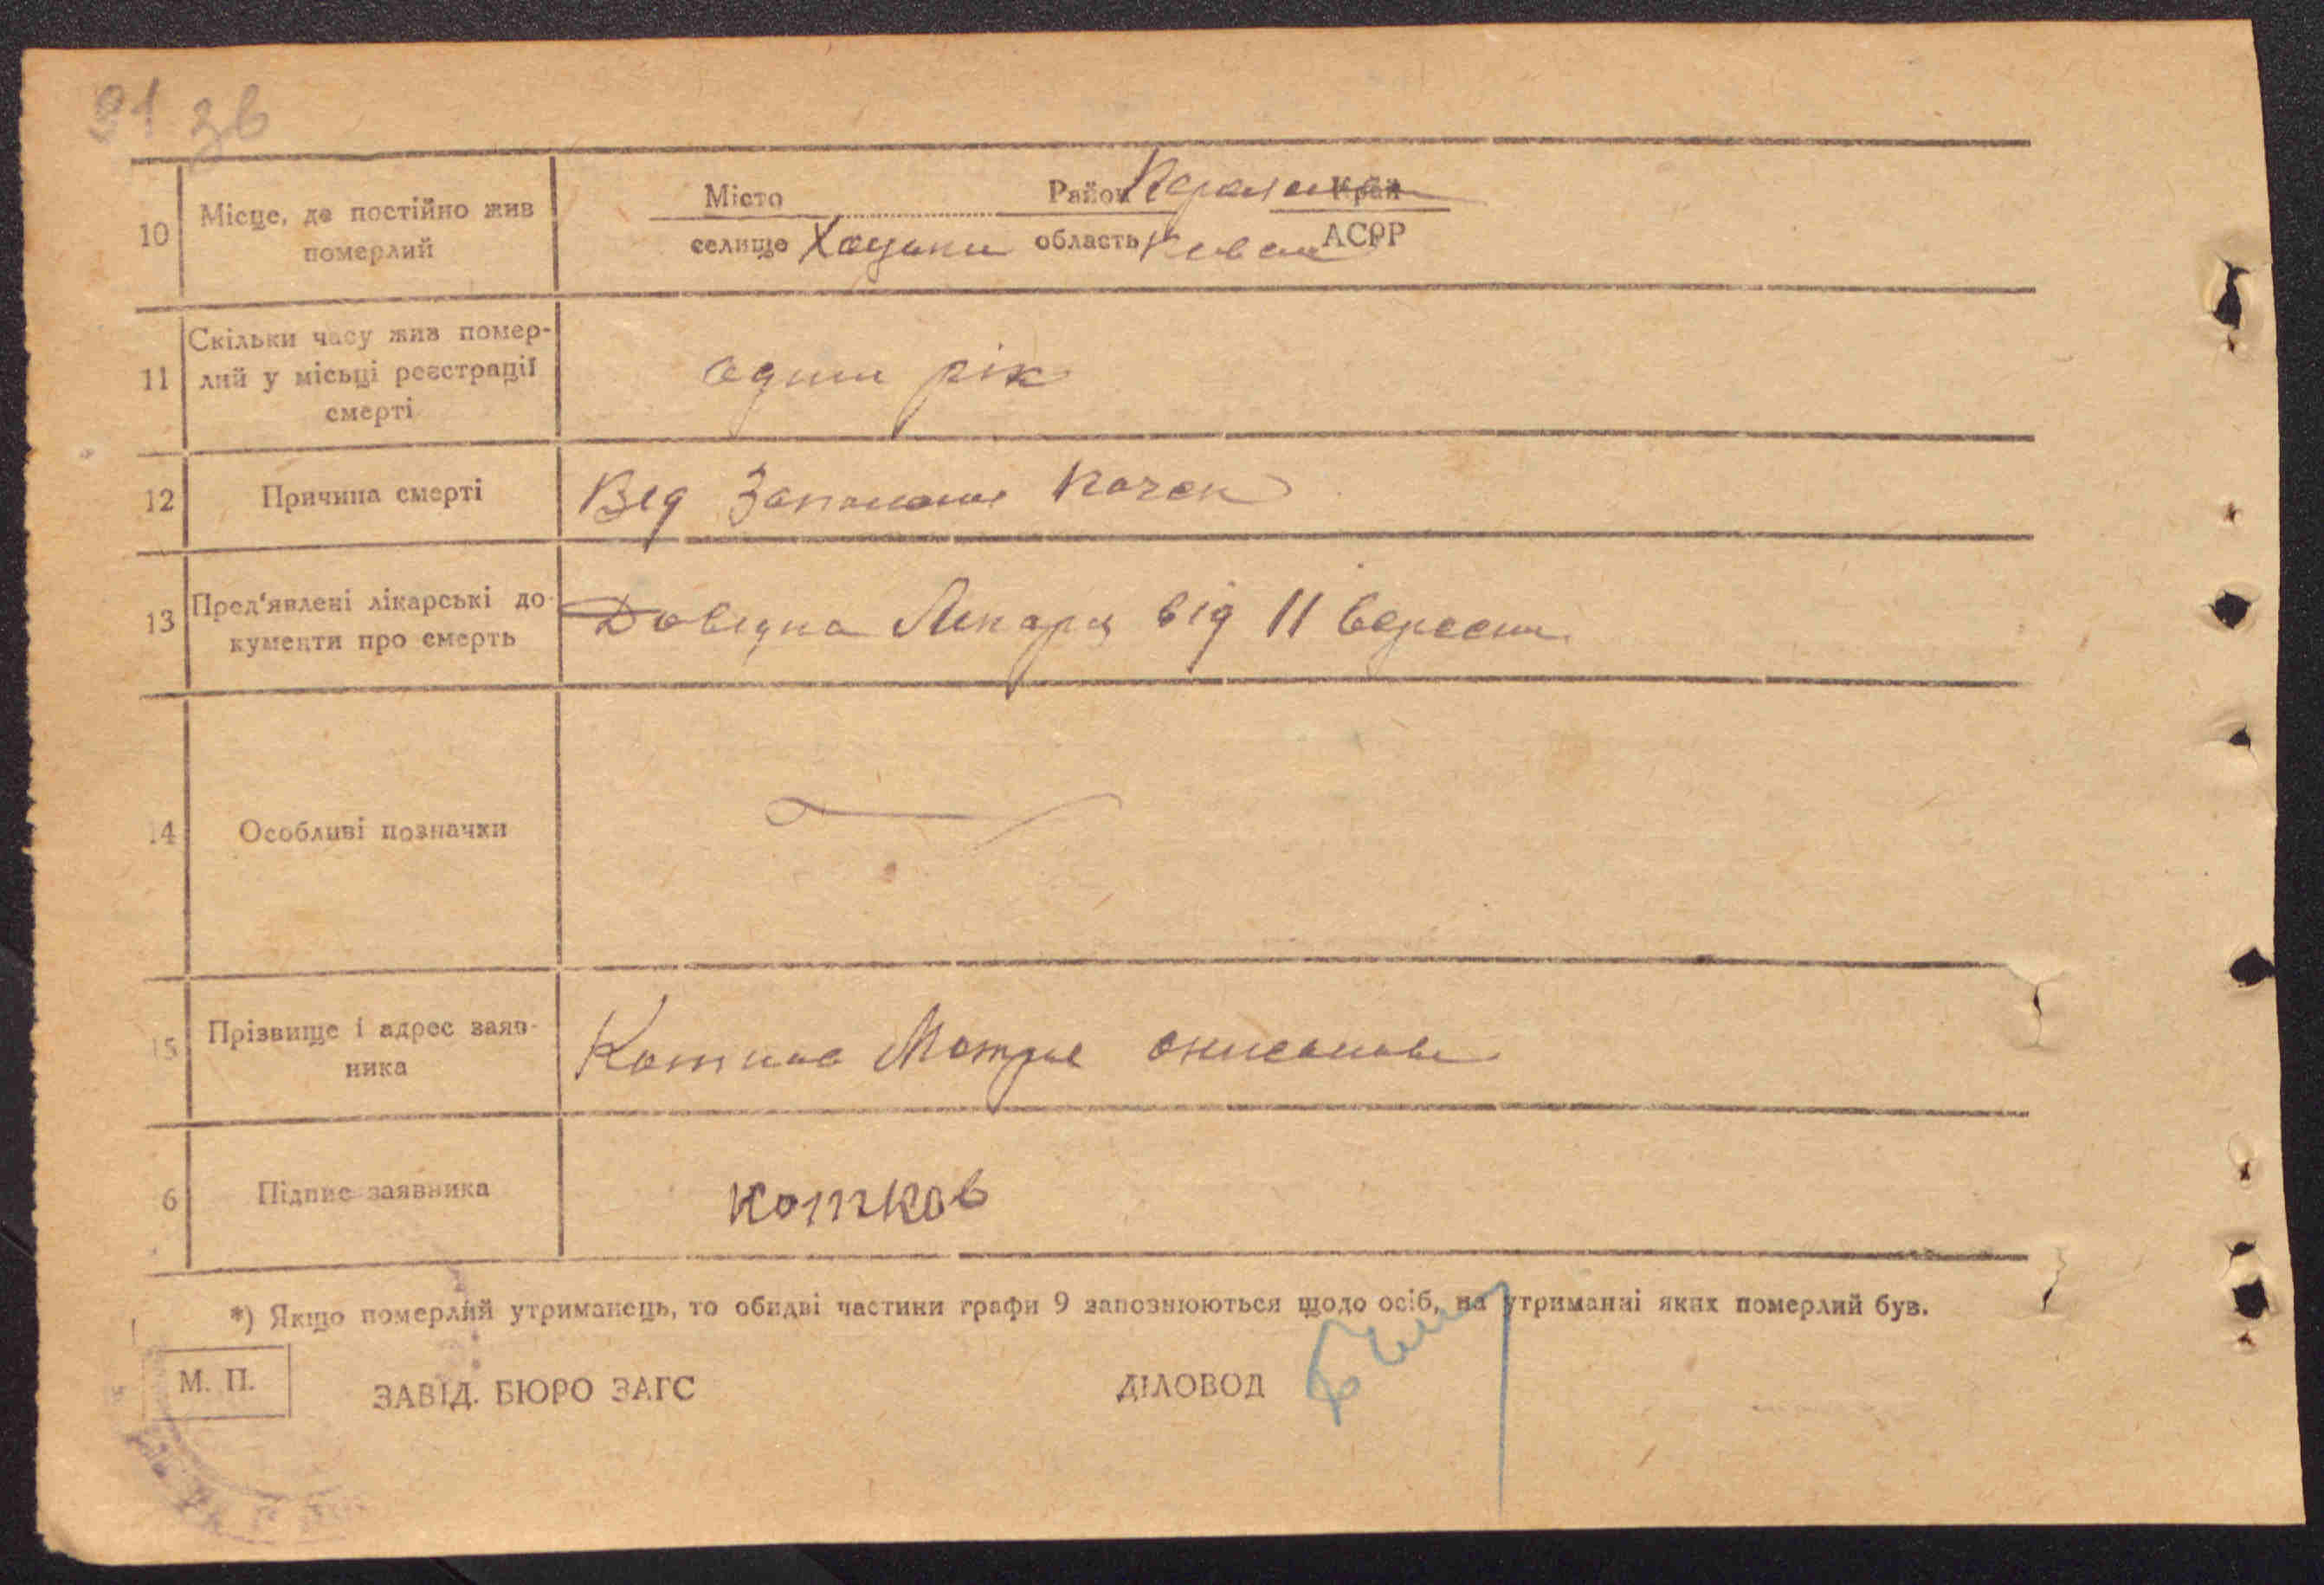 91 зв
10 Місце, де постійно жив Місто Район Край
померлий селище Хоцьки область АСРР
11 Скільки часу жив помер-
лий у місьці реєстрації один рік
смерті
12 Причина смерті Від Запаленне Почек
13 Пред'явлені лікарські до-
кументи про смерть Довідна Лікаря від 11 вересня
14 Особливі позначки
15 Прізвище і адрес заяв-
ника Мотря
6 Підпис заявника Котков
*) Якщо померлий утриманець, то обидві частини графи 9 запознюються щодо осіб, на утриманні яких померлий був.
М. П. ЗАВІД. БЮРО ЗАГС ДІЛОВОД